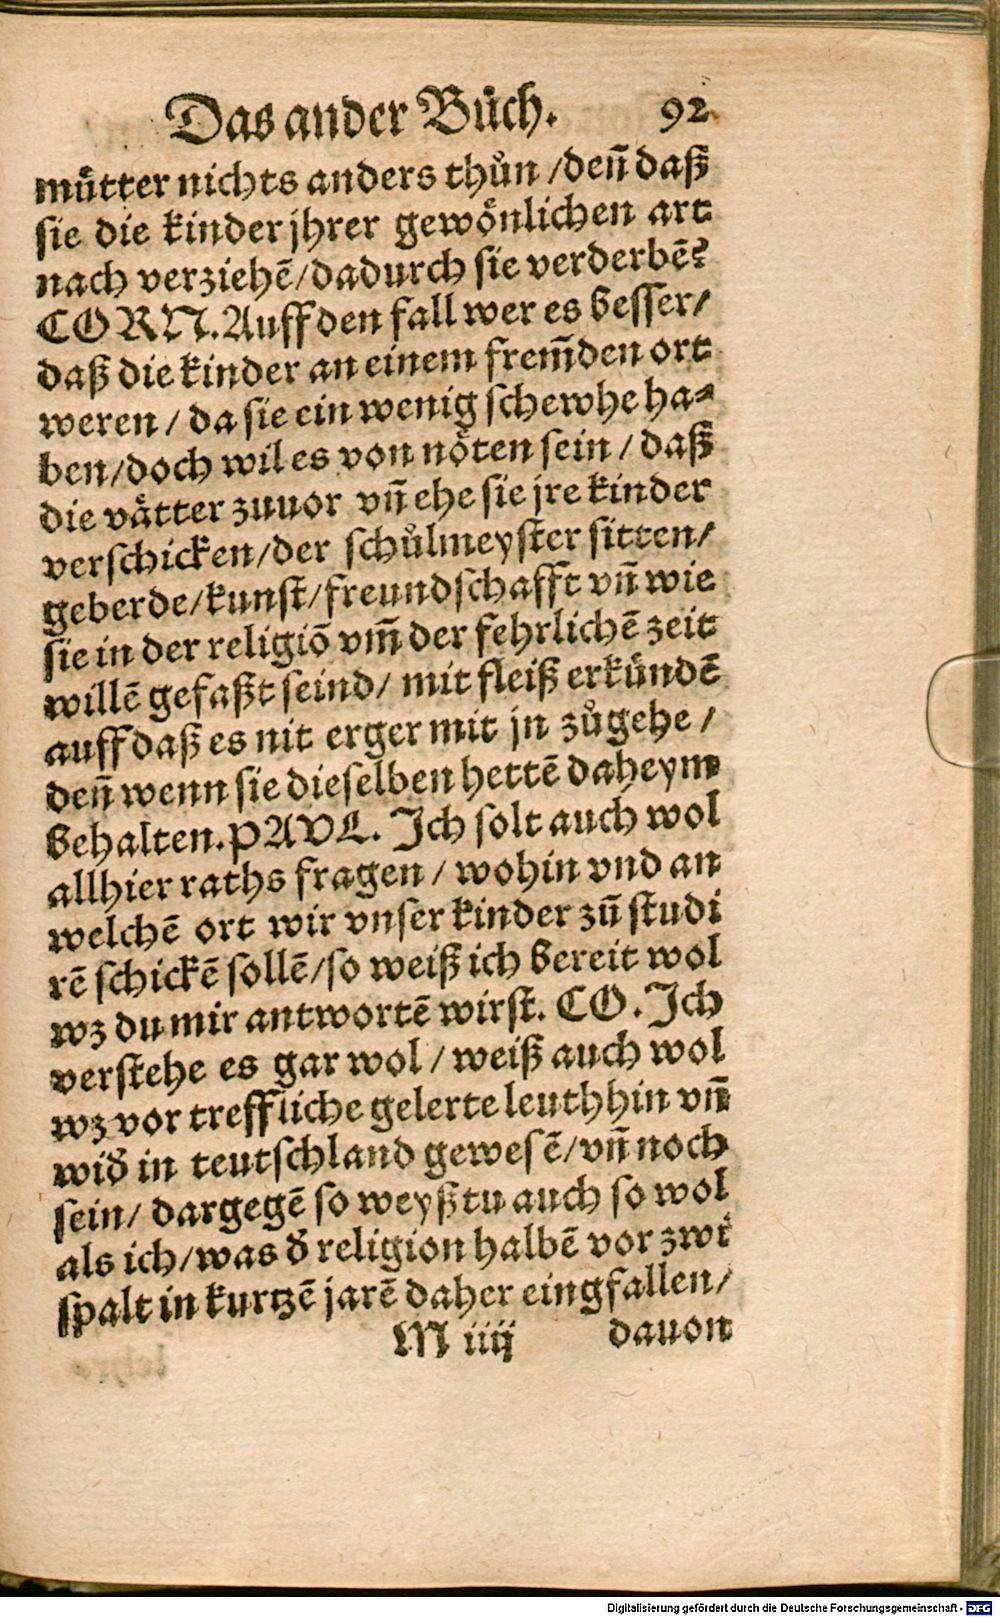 Das ander Bůch. 92
můtter nichts anders thůn /deñ daß
sie die kinder jhrer gewönlichen art
nach verziehẽ/dadurch sie verderbẽ?
CORN. Auff den fall wer es besser/
daß die kinder an einem frem̃den ort
weren / da sie ein wenig schewhe ha⸗
ben/doch wil es von nöten sein / daß
die vätter zuuor vñ ehe sie jre kinder
verschicken/der schůlmeyster sitten/
geberde/kunst/freundschafft vñ wie
sie in der religiõ vm̃ der fehrlichẽ zeit
willẽ gefaßt seind/ mit fleiß erkündẽ
auff daß es nit erger mit jn zůgehe /
deñ wenn sie dieselben hettẽ daheym
behalten. PAVL. Ich solt auch wol
allhier raths fragen / wohin vnd an
welchẽ ort wir vnser kinder zů studi
rẽ schickẽ sollẽ/so weiß ich bereit wol
wz du mir antwortẽ wirst. CO. Ich
verstehe es gar wol / weiß auch wol
wz vor treffliche gelerte leuth hin vñ
wid̃ in teutschland gewesẽ/vñ noch
sein/ dargegẽ so weyßtu auch so wol
als ich/was d̃ religion halbẽ vor zwi
spalt in kurtzẽ jarẽ daher eingfallen/
M iiij dauon
Digitalisierung gefördert durch die Deutsche Forschungsgemeinschaft - DFG